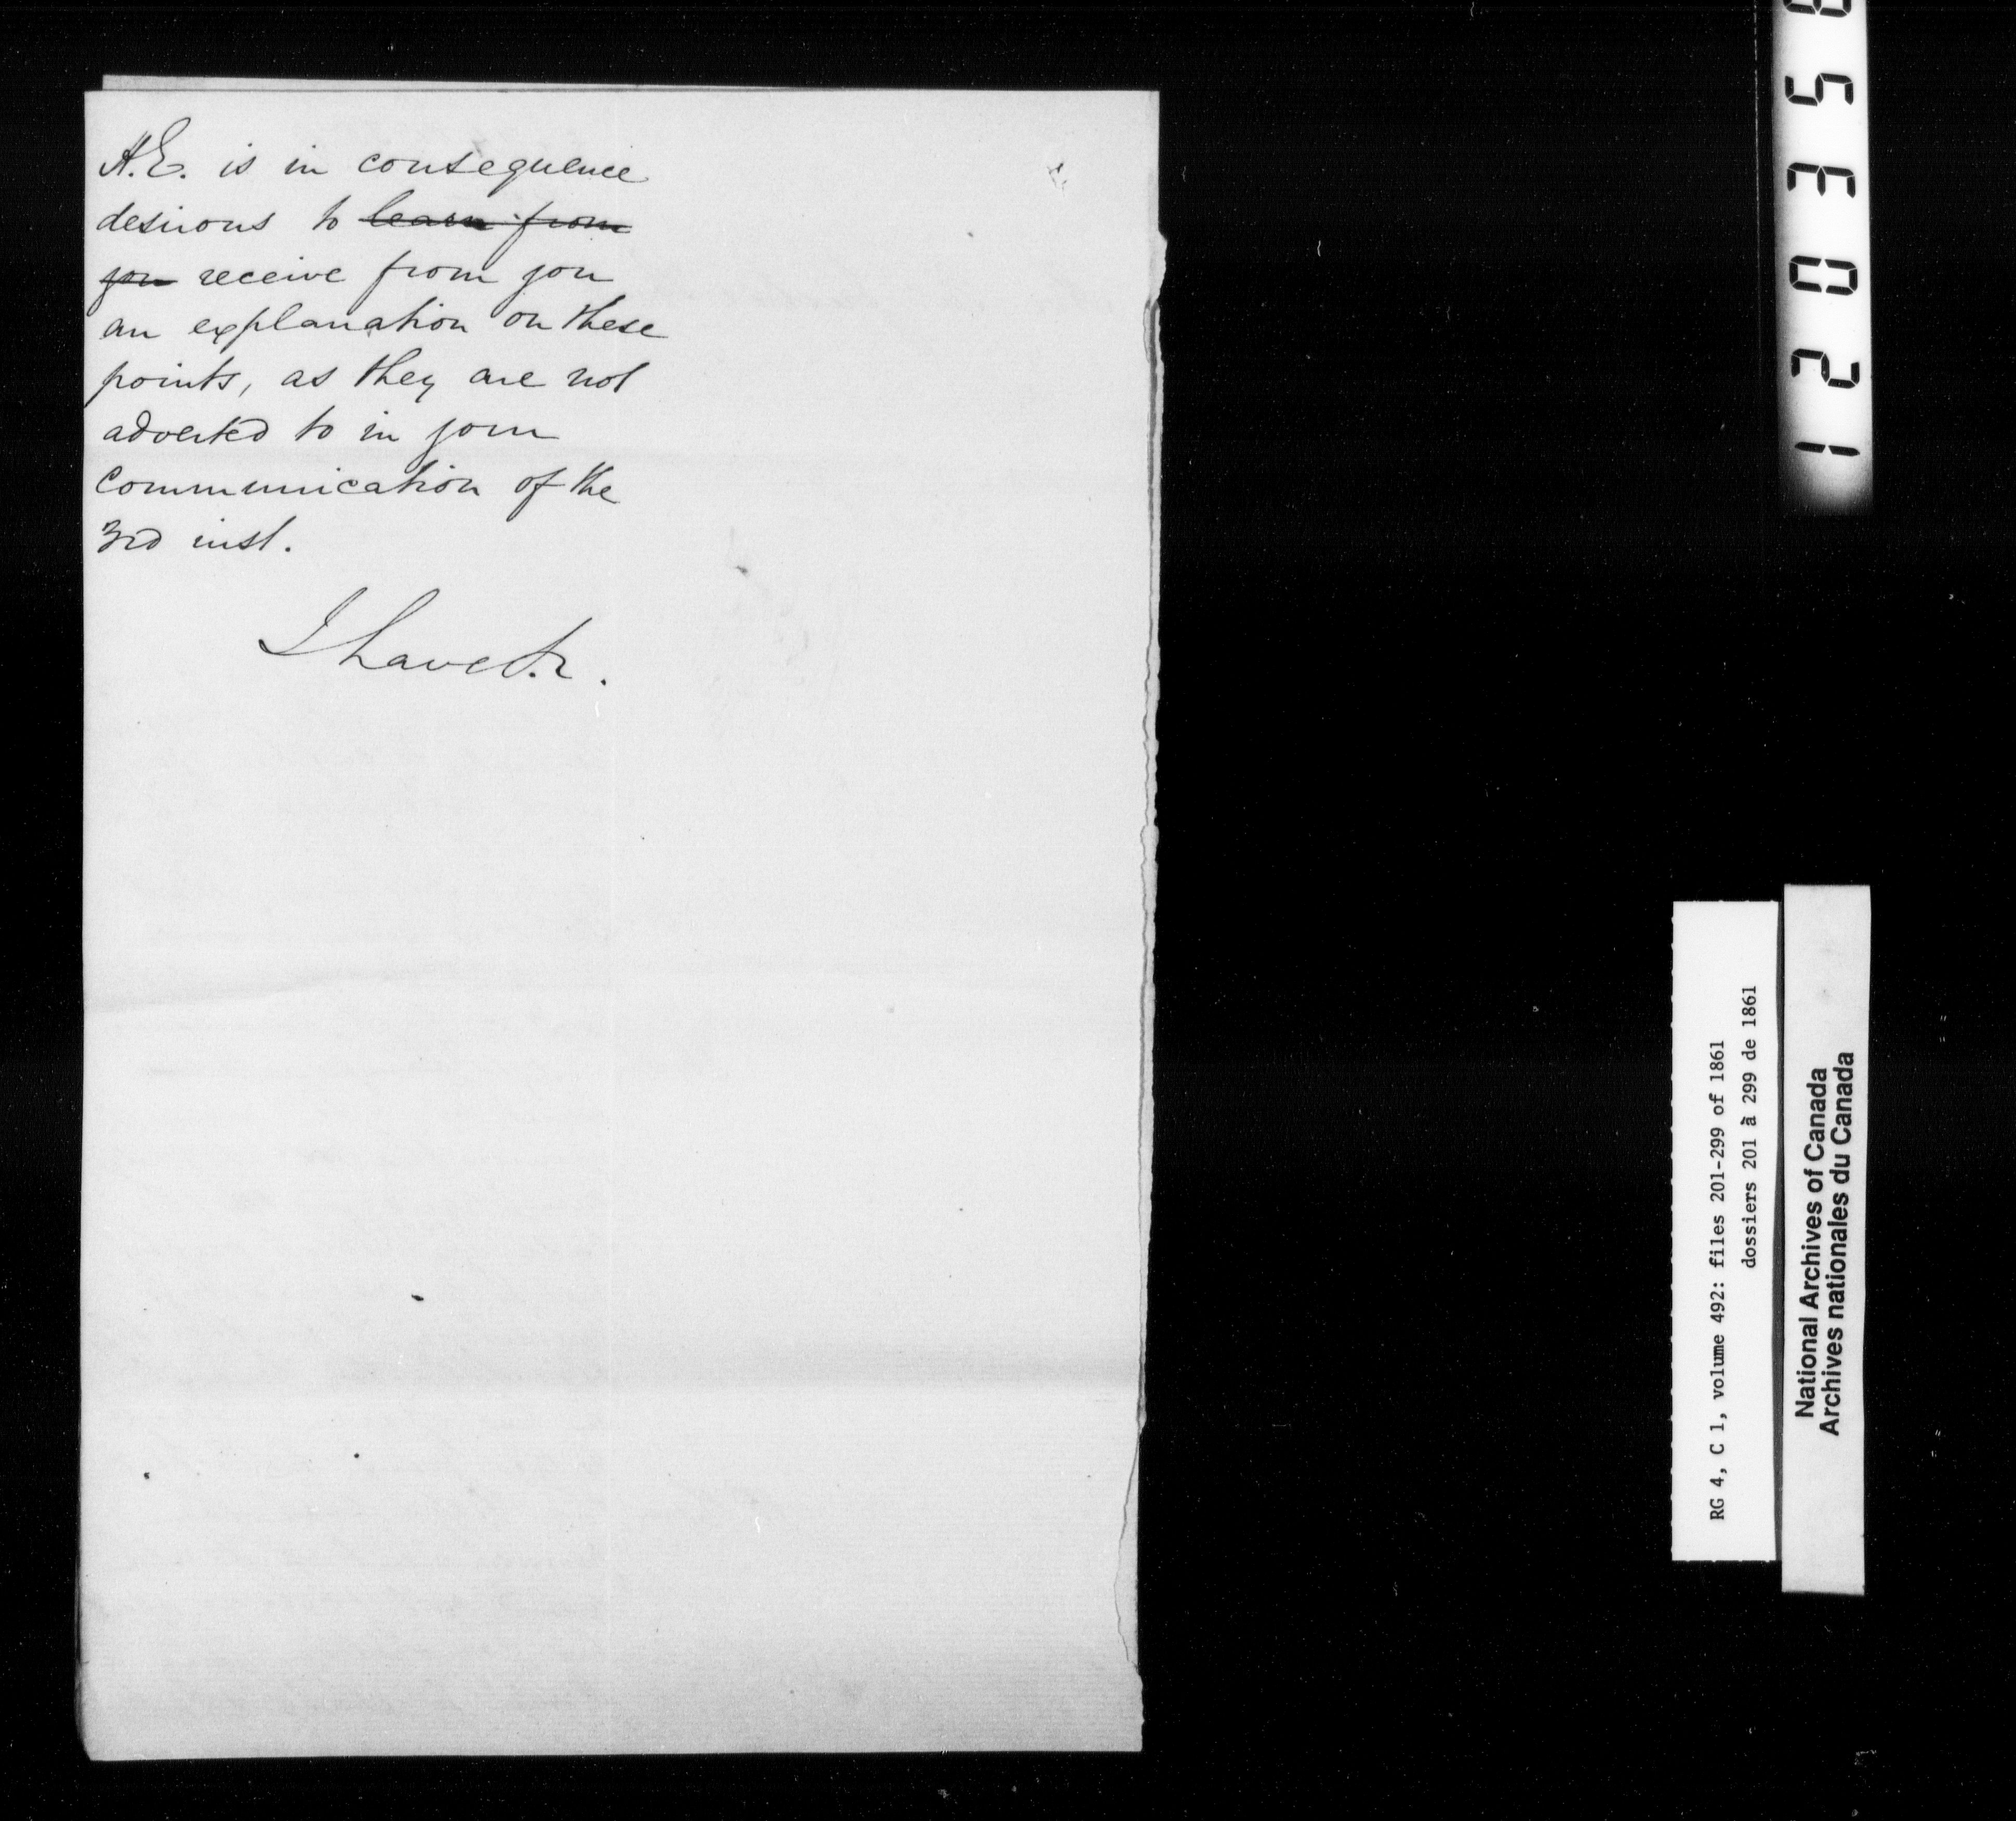 H.E. is in consequence
desirous to learn from
you receive from you
an explanation on these
points, as they are not
adverted to in your
communication of the
3rd inst.
I have &c.
RG 4, C 1, volume 492: files 201-299 of 1861
dossiers 201 à 299 de 1861
National Archives of Canada
Archives nationales du Canada
12035